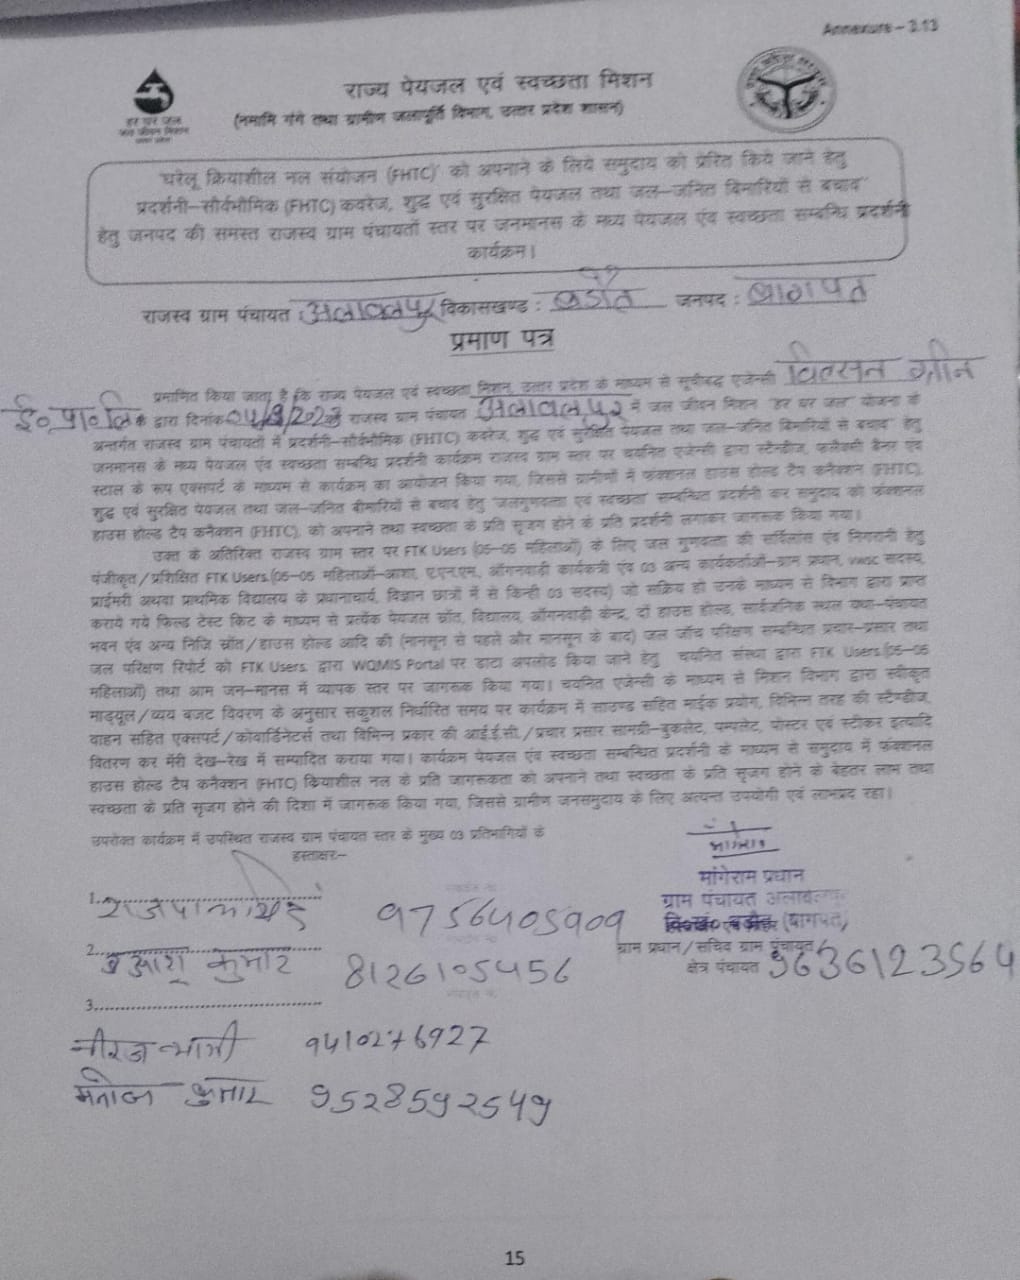 Annexure – 3.13
राज्य पेयजल एवं स्वच्छता मिशन
(नमामि गंगे तथा ग्रामीण जलापूर्ति विभाग, उत्तर प्रदेश शासन)
हर घर जल
जल जीवन मिशन
"घरेलू क्रियाशील नल संयोजन (FHTC)" को अपनाने के लिये समुदाय को प्रेरित किये जाने हेतु
प्रदर्शनी–सौर्वभौमिक (FHTC) कवरेज, शुद्ध एवं सुरक्षित पेयजल तथा जल–जनित बिमारियों से बचाव"
हेतु जनपद की समस्त राजस्व ग्राम पंचायतों स्तर पर जनमानस के मध्य पेयजल एंव स्वच्छता सम्बन्धि प्रदर्शनी
कार्यक्रम।
राजस्व ग्राम पंचायत : अलावलपुर विकासखण्ड : बडौत जनपद : बागपत
प्रमाण पत्र
प्रमाणित किया जाता है कि राज्य पेयजल एवं स्वच्छता मिशन, उत्तर प्रदेश के माध्यम से सूचीबद्ध एजेन्सी विलसन ग्रीन
ई० प्रा० लि० के द्वारा दिनांक राजस्व ग्राम पंचायत अलावलपुर में जल जीवन मिशन "हर घर जल" योजना के
अन्तर्गत राजस्व ग्राम पंचायतों में प्रदर्शनी–सौर्वभौमिक (FHTC) कवरेज, शुद्ध एवं सुरक्षित पेयजल तथा जल–जनित बिमारियों से बचाव" हेतु
जनमानस के मध्य पेयजल एंव स्वच्छता सम्बन्धि प्रदर्शनी कार्यक्रम राजस्व ग्राम स्तर पर चयनित एजेन्सी द्वारा स्टैन्डीज, फलैक्सी बैनर एंव
स्टाल के रूप एक्सपर्ट के माध्यम से कार्यक्रम का आयोजन किया गया, जिससे ग्रामीनों में फंक्शनल हाउस होल्ड टैप कनैक्शन (FHTC),
शुद्ध एवं सुरक्षित पेयजल तथा जल–जनित बीमारियों से बचाव हेतु "जलगुणवत्ता एवं स्वच्छता" सम्बन्धित प्रदर्शनी कर समुदाय को फंक्शनल
हाउस होल्ड टैप कनैक्शन (FHTC), को अपनाने तथा स्वच्छता के प्रति सृजग होने के प्रति प्रदर्शनी लगाकर जागरूक किया गया।
उक्त के अतिरिक्त राजस्व ग्राम स्तर पर FTK Users (05–05 महिलाओं) के लिए जल गुणवत्ता की सर्विलांस एंव निगरानी हेतु
पंजीकृत/प्रशिक्षित FTK Users.(05–05 महिलाओं–आशा, ए.एन.एम, ऑगनवाड़ी कार्यकत्री एंव 03 अन्य कार्यकर्ताओं–ग्राम प्रधान, vwsc सदस्य,
प्राईमरी अथवा प्राथमिक विद्यालय के प्रधानाचार्य, विज्ञान छात्रों में से किन्ही 03 सदस्य) जो सक्रिय हो उनके माध्यम से विभाग द्वारा प्राप्त
कराये गये फिल्ड टेस्ट किट के माध्यम से प्रत्येक पेयजल स्रोत, विद्यालय, ऑगनवाडी केन्द्र, दो हाउस होल्ड, सार्वजनिक स्थल यथा–पंचायत
भवन एंव अन्य निजि स्रोत/हाउस होल्ड आदि की (मानसून से पहले और मानसून के बाद) जल जॉच परिक्षण सम्बन्धित प्रचार–प्रसार तथा
जल परिक्षण रिपोर्ट को FTK Users. द्वारा WQMIS Portal पर डाटा अपलोड किया जाने हेतु चयनित संस्था द्वारा FTK Users.(05–05
महिलाओं) तथा आम जन–मानस में व्यापक स्तर पर जागरूक किया गया। चयनित एजेन्सी के माध्यम से मिशन विभाग द्वारा स्वीकृत
माड्यूल/व्यय बजट विवरण के अनुसार सकुशल निर्धारित समय पर कार्यक्रम में साउण्ड सहित माईक प्रयोग, विभिन्न तरह की स्टैण्डीज,
वाहन सहित एक्सपर्ट/कोवार्डिनेटर्स तथा विभिन्न प्रकार की आई.ई.सी./प्रचार प्रसार सामग्री–बुकलेट, पम्पलेट, पोस्टर एवं स्टीकर इत्यादि
वितरण कर मेरी देख–रेख में सम्पादित कराया गया। कार्यक्रम पेयजल एंव स्वच्छता सम्बन्धित प्रदर्शनी के माध्यम से समुदाय में फंक्शनल
हाउस होल्ड टैप कनैक्शन (FHTC) क्रियाशील नल के प्रति जागरूकता को अपनाने तथा स्वच्छता के प्रति सृजग होने के बेहतर लाभ तथा
स्वच्छता के प्रति सृजग होने की दिशा में जागरूक किया गया, जिससे ग्रामीण जनसमुदाय के लिए अत्यन्त उपयोगी एवं लाभप्रद रहा।
उपरोक्त कार्यक्रम में उपस्थित राजस्व ग्राम पंचायत स्तर के मुख्य 03 प्रतिभागियों के
हस्ताक्षर:–
मांगेराम प्रधान
ग्राम पंचायत अलावलपुर
वि०खं० बडौत (बागपत)
1. राजपाल सिंह 9756405909
ग्राम प्रधान/सचिव ग्राम पंचायत
2. आशू कुमार 8126105456
क्षेत्र पंचायत 9636123564
3.
नीरज 9410276927
मनोज कुमार 9528592549
15